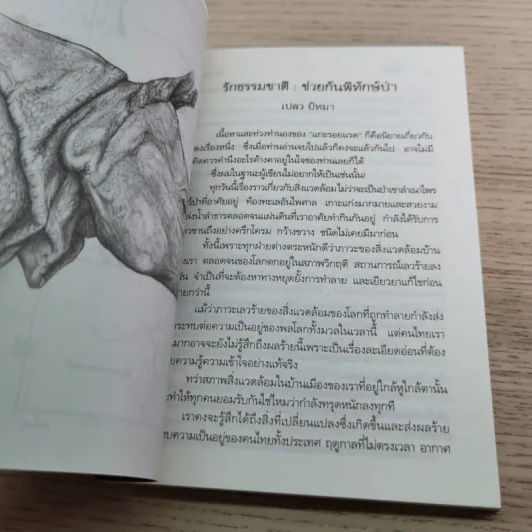 รักธรรมชาติ : ช่วยกันพิทักษ์ป่า
เปลว ปัทมา
เนื้อหาและท่วงทำนองของ "แกะรอยแรด" ก็คือนิยายเกี่ยวกับ
ดงเรื่องหนึ่ง ซึ่งเมื่อท่านอ่านจบไปแล้วก็คงจะแล้วกันไป อาจไม่มี
คิดควรคำนึงอะไรค้างคาอยู่ในใจของท่านเลยก็ได้
ซึ่งผมในฐานะผู้เขียนไม่อยากให้เป็นเช่นนั้น!
ทุกวันนี้เรื่องราวเกี่ยวกับสิ่งแวดล้อม ไม่ว่าจะเป็นป่าเขาลำเนาไพร
ว์ป่าที่อาศัยอยู่ ท้องทะเลอันไพศาล เกาะแก่งมากมายและสวยงาม
ส่งน้ำลำธารตลอดจนแผ่นดินที่เราอาศัยทำกินกันอยู่ กำลังได้รับการ
วขานถึงอย่างครึกโครม กว้างขวาง ชนิดไม่เคยมีมาก่อน
ทั้งนี้เพราะทุกฝ่ายต่างตระหนักดีว่าภาวะของสิ่งแวดล้อมบ้าน
งเรา ตลอดจนของโลกตกอยู่ในสภาพวิกฤติ สถานการณ์เลวร้ายลง
วัน จำเป็นที่จะต้องหาทางหยุดยั้งการทำลาย และเยียวยาแก้ไขก่อน
ายกว่านี้
แม้ว่าภาวะเลวร้ายของสิ่งแวดล้อมของโลกที่ถูกทำลายกำลังส่ง
ระทบต่อความเป็นอยู่ของพลโลกทั้งมวลในเวลานี้ แต่คนไทยเรา
มากอาจจะยังไม่รู้สึกถึงผลร้ายนี้เพราะเป็นเรื่องละเอียดอ่อนที่ต้อง
ยความรู้ความเข้าใจอย่างแท้จริง
ทว่าสภาพสิ่งแวดล้อมในบ้านเมืองของเราที่อยู่ใกล้หูใกล้ตานั้น
ะทำให้ทุกคนยอมรับกันใช่ไหมว่ากำลังทรุดหนักลงทุกที
เราคงจะรู้สึกได้ถึงสิ่งที่เปลี่ยนแปลงซึ่งเกิดขึ้นและส่งผลร้าย
ะทบความเป็นอยู่ของคนไทยทั้งประเทศ ฤดูกาลที่ไม่ตรงเวลา อากาศ